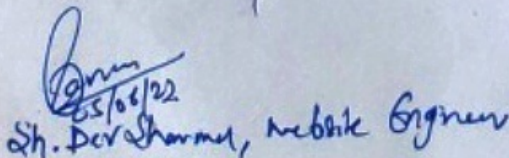 05/06/22
Sh. Dev Sharma, website Engineer